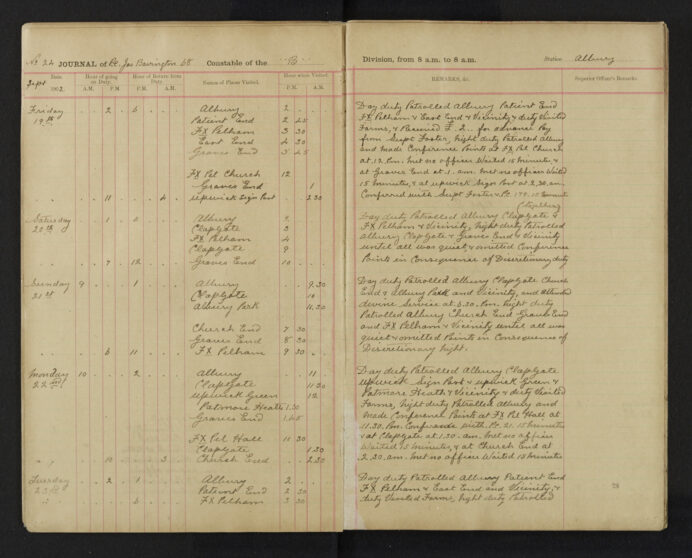 No 24 JOURNAL of P.C. Jas Barrington 68 Constable of the "B" Division, from 8 a.m. to 8 a.m. Station Albury
Sept
Date. Hour of going on Duty. Hour of Return from Duty. Names of Places Visited. Hour when Visited REMARKS, &c. Superior Officer's Remarks.
1902. A.M. P.M. A.M. P.M. P.M. A.M.
Friday 2 6 Albury 2 Day duty Patrolled Albury Patient End
19th Patient End 2 45 FX Pelham & East End & Vicinity & duty Visited
FX Pelham 3 30 Farms, & Received £ 2 for advance Pay
East End 4 30 from Supt Foster, Night duty Patrolled Albury
Graves End 5 45 and Made Conference Points at FX Pel Church
at 12 P.m. Met no officer Waited 15 minutes &
FX Pel Church 12 at Graves End at 1. am. Met no officer Waited
Graves End 1 15 minutes, & at upwick Sign Post at 2.30 am.
11 4 upwick Sign Post 2 30 Conferred with Supt Foster & Pc 174. 15 minutes
Saturday 1 5 Albury Day duty Patrolled Albury Clapgate &
20th Clapgate 3 FX Pelham & Vicinity, Night duty Patrolled
FX Pelham 4 Albury Clapgate & Graves End & Vicinity
Clapgate 9 until all was quiet & omitted Conference
7 12 Graves End 10 Points in Consequence of Discretionary duty
Sunday 9 1 Albury 9.30 Day duty Patrolled Albury Clapgate Church
21st Clapgate 10 End & Albury Park and Vicinity, and attended
Albury Park 11.30 devine Service at 6.30. Pm. Night duty
Patrolled Albury Church End Graves End
Church End 7 30 and FX Pelham & Vicinity until all was
Graves End 8 30 quiet & omitted Points in Consequence of
6 11 FX Pelham 9 30 Discretionary Night.
Monday 10 2 Albury 11 Day duty Patrolled Albury Clapgate
22nd Clapgate 11 30 upwick Sign Post & upwick Green &
upwick Green 12 Patmore Heath & Vicinity & duty Visited
Patmore Heath 1.30 Farms, Night duty Patrolled Albury and
Graves End 1.45 Made Conference Points at FX Pel Hall at
11.30. Pm. with Pc. 21. 15 minutes
FX Pel Hall 11 30 & at Clapgate at 1.30. am. Met no officer
Clapgate 1.30 Waited 15 minutes, & at Church End at
10 3 Church End 2.30 2.30 am. Met no officer Waited 15 minutes
Tuesday 2 1 Albury 2 Day duty Patrolled Albury Patient End
23rd Patient End 2 30 FX Pelham & East End and Vicinity, &
6 FX Pelham 3 30 duty Visited Farms, Night duty Patrolled